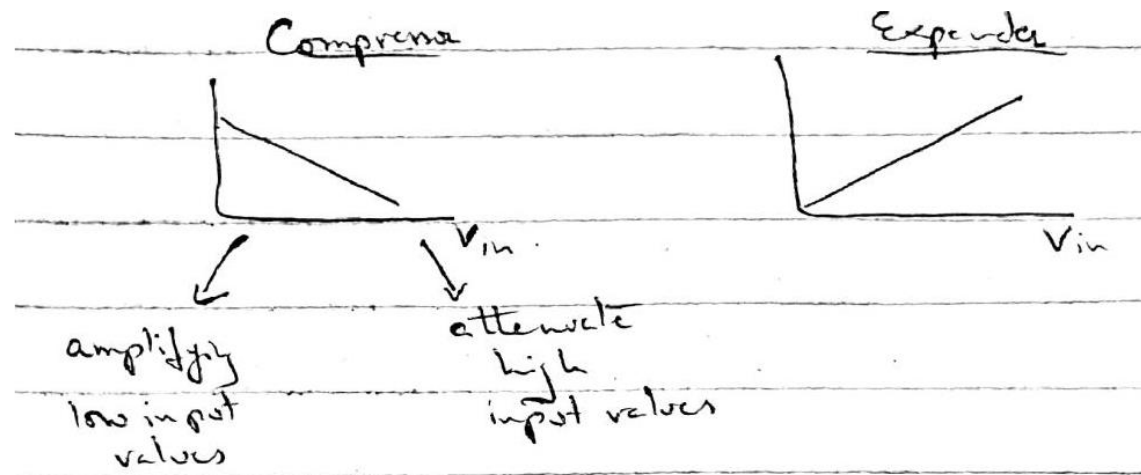 Compressor
Expander
Vin
Vin
amplifying
low input
values
attenuate
high
input values